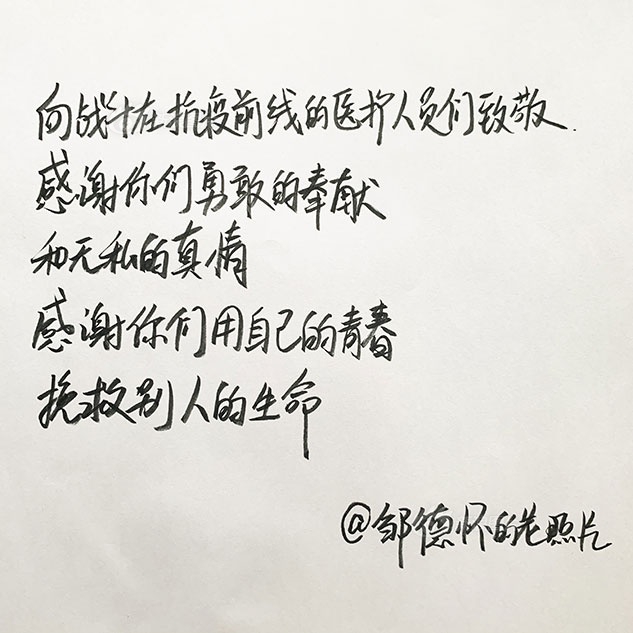 向战斗在抗疫前线的医护人员们致敬.
感谢你们勇敢的奉献
和无私的真情
感谢你们用自己的青春
挽救别人的生命
@邹德怀的老照片